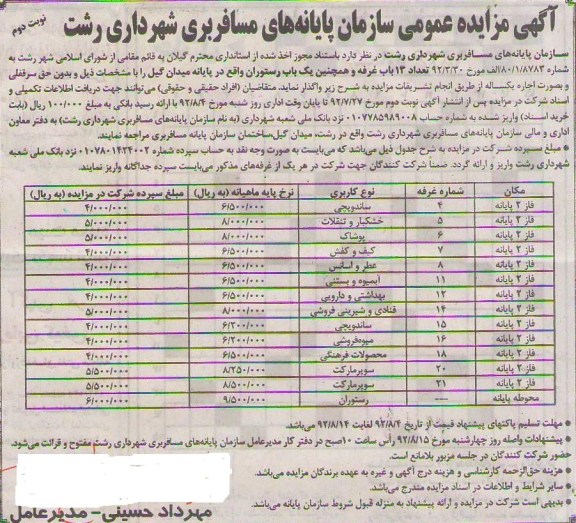 آگهی مزایده عمومی سازمان پایانه‌های مسافربری شهرداری رشت
نوبت دوم
سازمان پایانه‌های مسافربری شهرداری رشت در نظر دارد باستناد مجوز اخذ شده از استانداری محترم گیلان به قائم مقامی از شورای اسلامی شهر رشت به
شماره ۸۰/۱/۸۷۸۳الف مورخ ۹۲/۳/۳۰ تعداد ۱۳ باب غرفه و همچنین یک باب رستوران واقع در پایانه میدان گیل را با مشخصات ذیل و بدون حق سرقفلی
و بصورت اجاره یکساله از طریق انجام تشریفات مزایده به شرح زیر واگذار نماید. متقاضیان (افراد حقیقی و حقوقی) می‌توانند جهت دریافت اطلاعات تکمیلی و
اسناد شرکت در مزایده پس از انتشار آگهی نوبت دوم مورخ ۹۲/۷/۲۷ تا پایان وقت اداری روز شنبه مورخ ۹۲/۸/۴ با ارائه رسید بانکی به مبلغ ۱۰۰/۰۰۰ ریال (بابت
خرید اسناد) واریز شده به شماره حساب ۰۱۰۷۷۸۵۹۸۹۰۰۸ نزد بانک ملی شعبه شهرداری (به نام سازمان پایانه‌های مسافربری شهرداری رشت) به دفتر معاون
اداری و مالی سازمان پایانه‌های مسافربری شهرداری رشت واقع در رشت، میدان گیل،ساختمان سازمان پایانه مسافربری مراجعه نمایند.
• مبلغ سپرده شرکت در مزایده به شرح جدول ذیل می‌باشد که می‌بایست به صورت وجه نقد به حساب سپرده شماره ۰۱۰۷۸۰۱۴۳۴۰۰۲ نزد بانک ملی شعبه
شهرداری رشت واریز و ارائه گردد. ضمناً شرکت کنندگان جهت شرکت در هر یک از غرفه‌های مذکور می‌بایست سپرده جداگانه واریز نمایند.
مکان شماره غرفه نوع کاربری نرخ پایه ماهیانه (به ریال) مبلغ سپرده شرکت در مزایده (به ریال)
فاز ۲ پایانه ۴ ساندویچی ۶/۵۰۰/۰۰۰ ۴/۰۰۰/۰۰۰
فاز ۲ پایانه ۵ خشکبار و تنقلات ۸/۰۰۰/۰۰۰ ۵/۰۰۰/۰۰۰
فاز ۲ پایانه ۶ پوشاک ۸/۰۰۰/۰۰۰ ۵/۰۰۰/۰۰۰
فاز ۲ پایانه ۷ کیف و کفش ۶/۵۰۰/۰۰۰ ۴/۰۰۰/۰۰۰
فاز ۲ پایانه ۸ عطر و اسانس ۶/۵۰۰/۰۰۰ ۴/۰۰۰/۰۰۰
فاز ۲ پایانه ۱۱ آبمیوه و بستنی ۶/۵۰۰/۰۰۰ ۴/۰۰۰/۰۰۰
فاز ۲ پایانه ۱۲ بهداشتی و دارویی ۶/۵۰۰/۰۰۰ ۴/۰۰۰/۰۰۰
فاز ۲ پایانه ۱۴ قنادی و شیرینی فروشی ۸/۰۰۰/۰۰۰ ۵/۰۰۰/۰۰۰
فاز ۲ پایانه ۱۵ ساندویچی ۶/۲۰۰/۰۰۰ ۴/۰۰۰/۰۰۰
فاز ۲ پایانه ۱۶ میوه‌فروشی ۶/۲۰۰/۰۰۰ ۴/۰۰۰/۰۰۰
فاز ۲ پایانه ۱۸ محصولات فرهنگی ۶/۵۰۰/۰۰۰ ۴/۰۰۰/۰۰۰
فاز ۲ پایانه ۲۰ سوپرمارکت ۸/۲۵۰/۰۰۰ ۵/۵۰۰/۰۰۰
فاز ۲ پایانه ۲۱ سوپرمارکت ۸/۵۰۰/۰۰۰ ۵/۵۰۰/۰۰۰
محوطه پایانه ---- رستوران ۹/۵۰۰/۰۰۰ ۶/۰۰۰/۰۰۰
• مهلت تسلیم پاکتهای پیشنهاد قیمت از تاریخ ۹۲/۸/۴ لغایت ۹۲/۸/۱۴ می‌باشد.
• پیشنهادات واصله روز چهارشنبه مورخ ۹۲/۸/۱۵ رأس ساعت ۱۰صبح در دفتر کار مدیرعامل سازمان پایانه‌های مسافربری شهرداری رشت مفتوح و قرائت می‌شود.
حضور شرکت کنندگان در جلسه مزبور بلامانع است.
• هزینه حق‌الزحمه کارشناسی و هزینه درج آگهی و غیره به عهده برندگان مزایده می‌باشد.
• سایر شرایط و اطلاعات در اسناد مزایده مندرج می‌باشد.
• بدیهی است شرکت در مزایده و ارائه پیشنهاد به منزله قبول شروط سازمان پایانه می‌باشد.
مهرداد حسینی- مدیرعامل